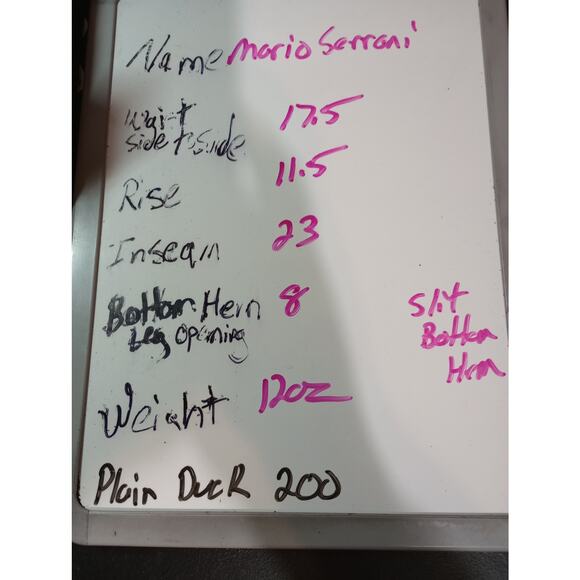 Name Mario Serrani
Waist 17.5
side to side
Rise 11.5
Inseam 23
Bottom Hem 8
Leg Opening
Slit
Bottom
Hem
Weight 12oz
Plain Duck 200